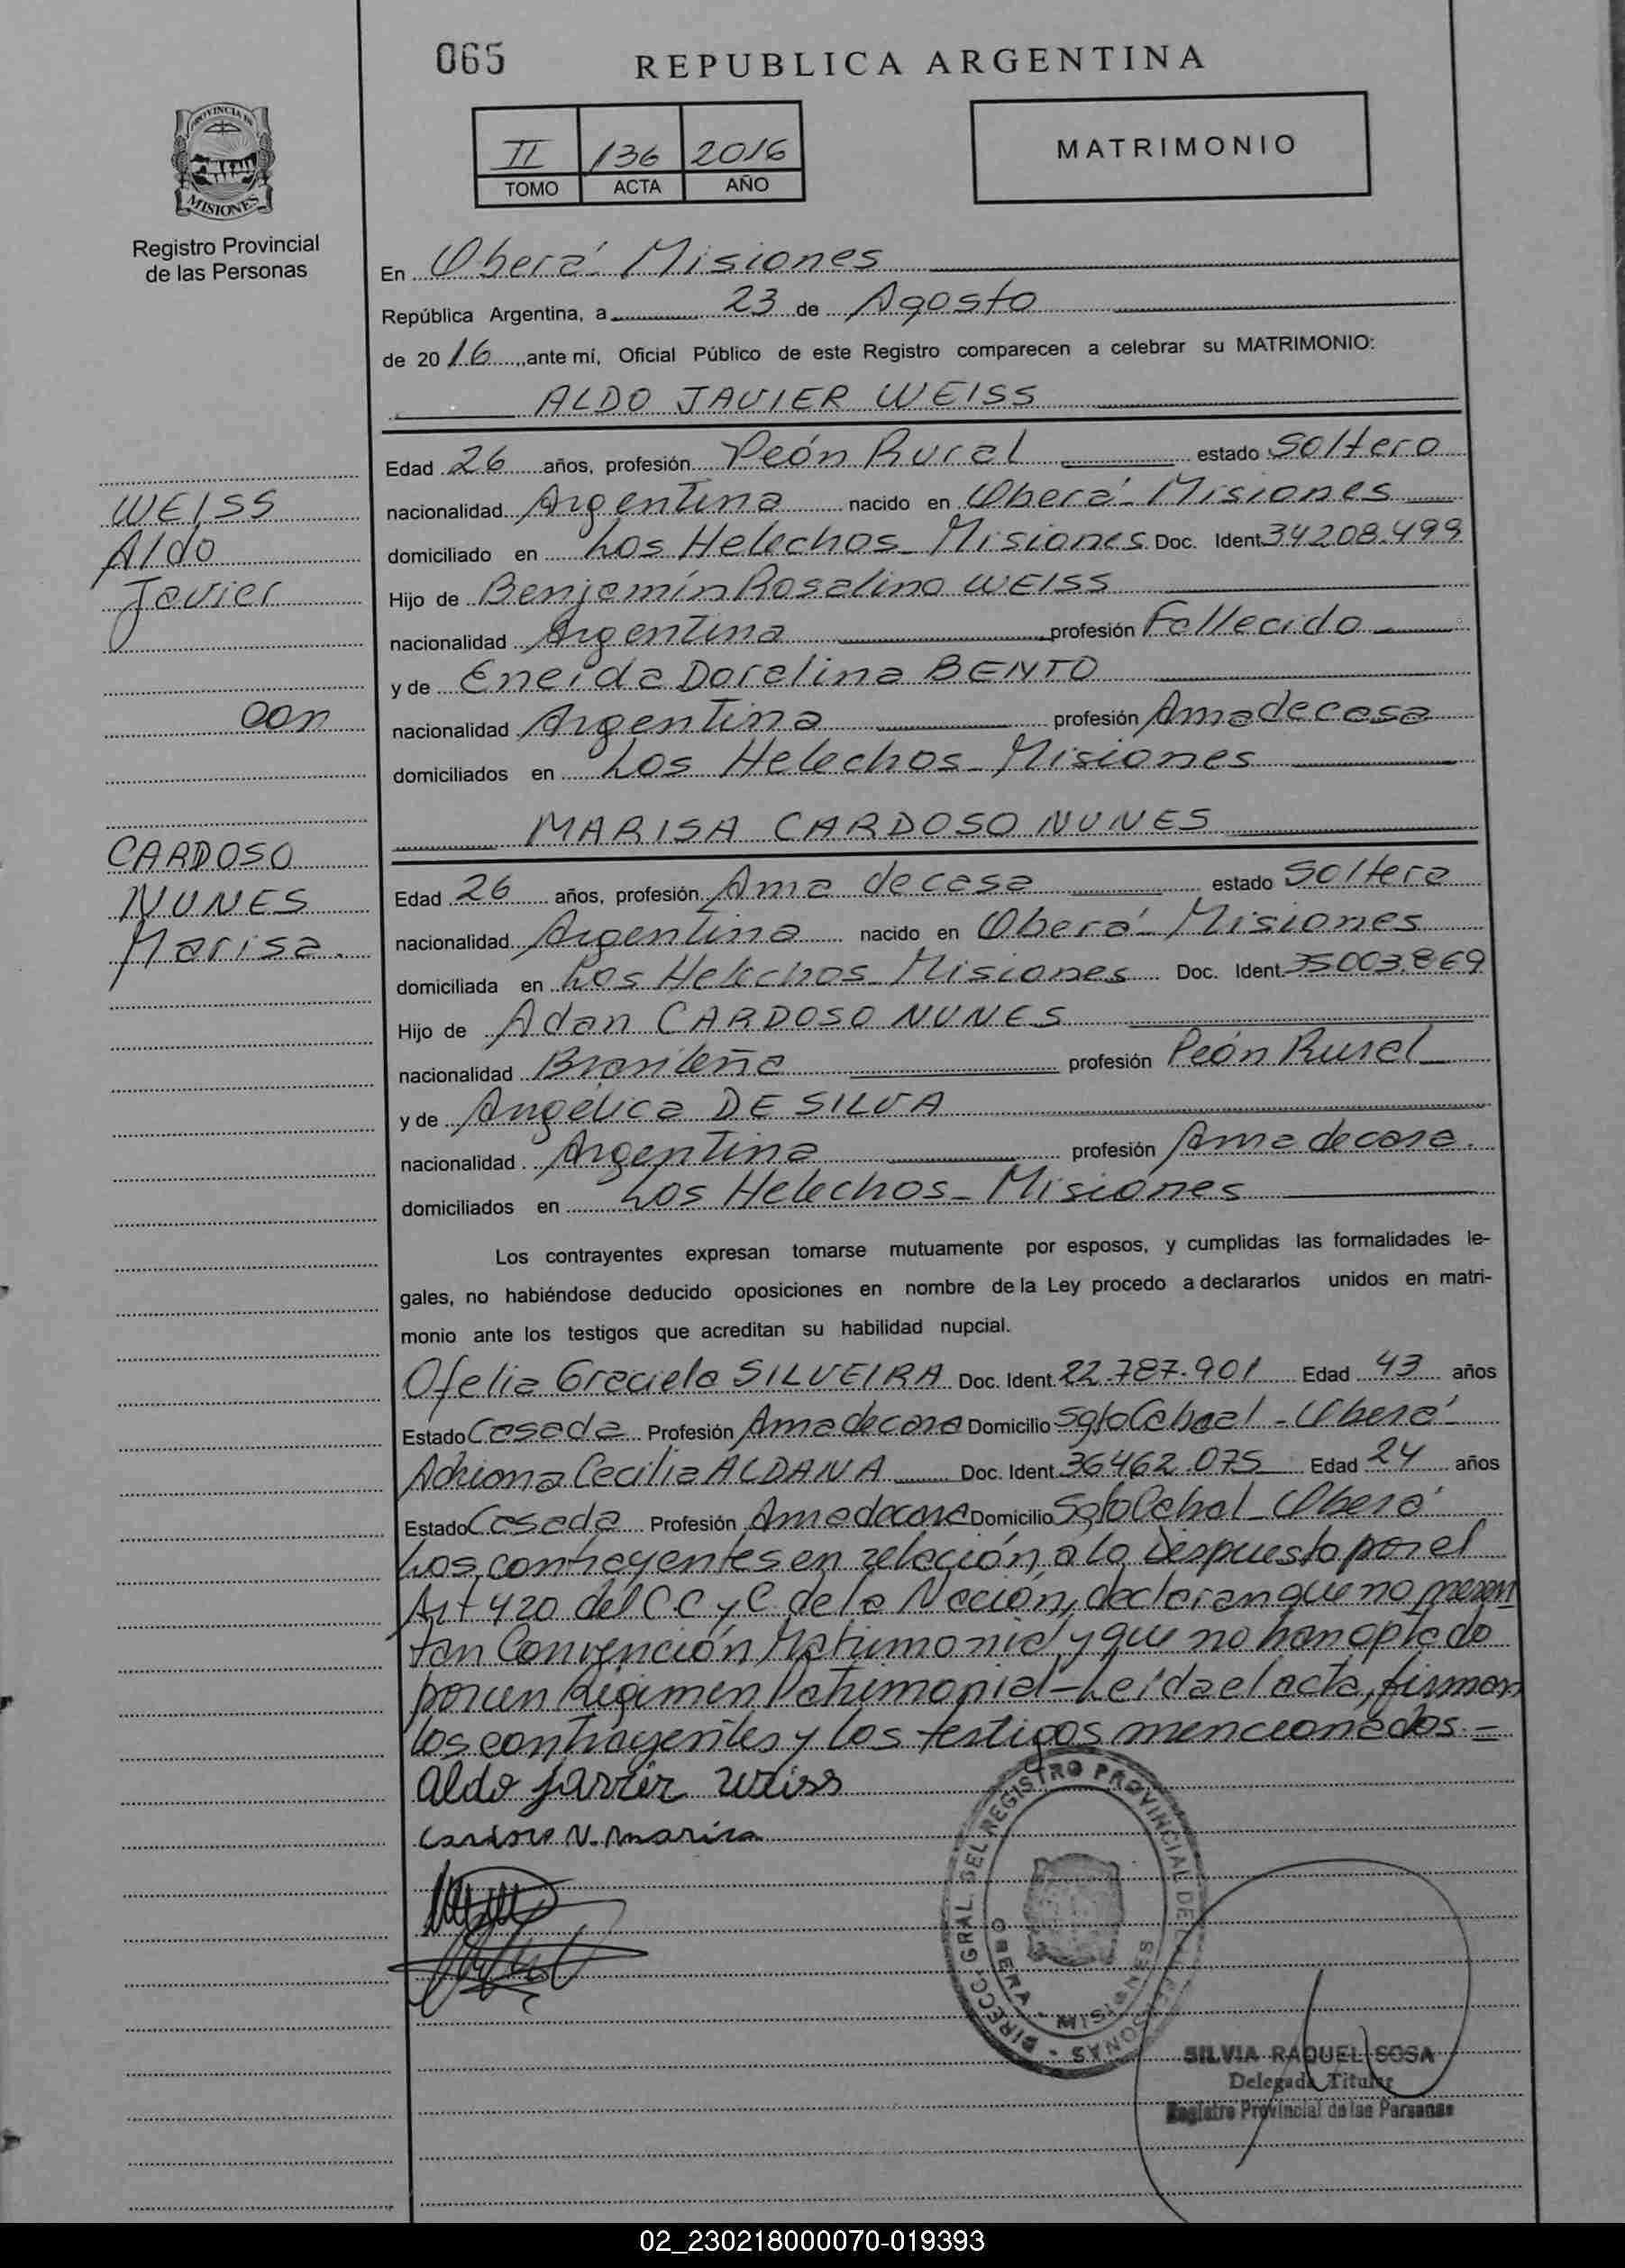 065
REPUBLICA ARGENTINA
PROVINCIA DE
MISIONES
II 136 2016
TOMO ACTA AÑO
MATRIMONIO
Registro Provincial
de las Personas
En Oberá Misiones
República Argentina, a 23 de Agosto
de 2016, ante mí, Oficial Público de este Registro comparecen a celebrar su MATRIMONIO:
ALDO JAVIER WEISS
Edad 26 años, profesión Peón Rural estado Soltero
WEISS
nacionalidad Argentina nacido en Oberá - Misiones
Aldo
domiciliado en Los Helechos - Misiones Doc. Ident 34208.499
Javier
Hijo de Benjamín Rosalino WEISS
nacionalidad Argentina profesión Fallecido
y de Eneida Doralina BENTO
con
nacionalidad Argentina profesión Ama de casa
domiciliados en Los Helechos - Misiones
MARISA CARDOSO NUNES
CARDOSO
Edad 26 años, profesión Ama de casa estado Soltera
NUNES
nacionalidad Argentina nacido en Oberá - Misiones
Marisa.
domiciliada en Los Helechos - Misiones Doc. Ident 35003.869
Hijo de Adan CARDOSO NUNES
nacionalidad Brasileña profesión Peón Rural
y de Angélica DE SILVA
nacionalidad Argentina profesión Ama de casa.
domiciliados en Los Helechos - Misiones
Los contrayentes expresan tomarse mutuamente por esposos, y cumplidas las formalidades le-
gales, no habiéndose deducido oposiciones en nombre de la Ley procedo a declararlos unidos en matri-
monio ante los testigos que acreditan su habilidad nupcial.
Ofelia Graciela SILVEIRA Doc. Ident. 22.787.901 Edad 43 años
Estado Casada Profesión Ama de casa Domicilio Sgto Cabral - Oberá
Adriana Cecilia ALDANA Doc. Ident 36462.075 Edad 24 años
Estado Casada Profesión Ama de casa Domicilio Sgto Cabral - Oberá
Los contrayentes en relación a lo Dispuesto por el
Art 420 del CC y C de la Nación, declaran que no presen
tan Convención Matrimonial y que no han optado
por un Régimen Patrimonial - Leída el acta, firman
los contrayentes y los testigos mencionados. -
Aldo Javier Weiss
Cardoso N. Marisa
DIRECC. GRAL. DEL REGISTRO PROVINCIAL DE LAS PERSONAS
OBERA - MISIONES
SILVIA RAQUEL SOSA
Delegada Titular
Registro Provincial de las Personas
02_230218000070-019393